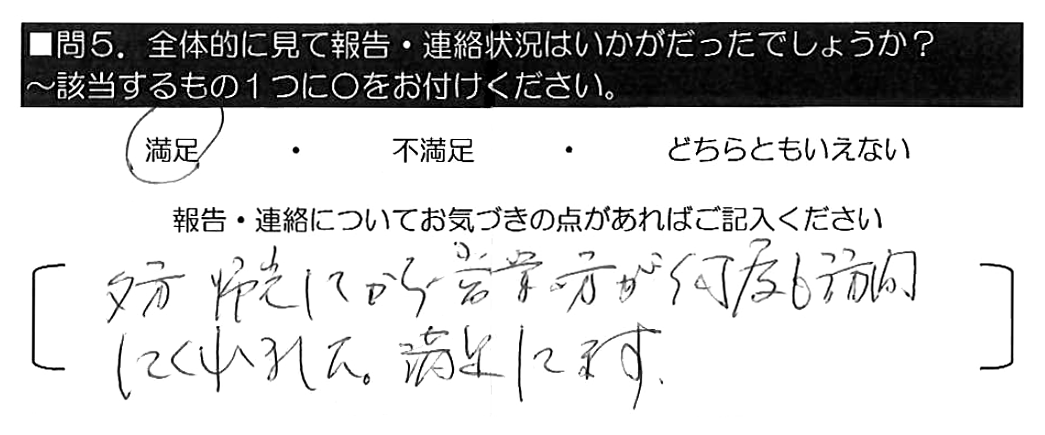 ■問5．全体的に見て報告・連絡状況はいかがだったでしょうか？
～該当するもの1つに○をお付けください。
満足 ・ 不満足 ・ どちらともいえない
報告・連絡についてお気づきの点があればご記入ください
夕方帰宅してから営業の方が何度も訪問
してくれました。満足してます。